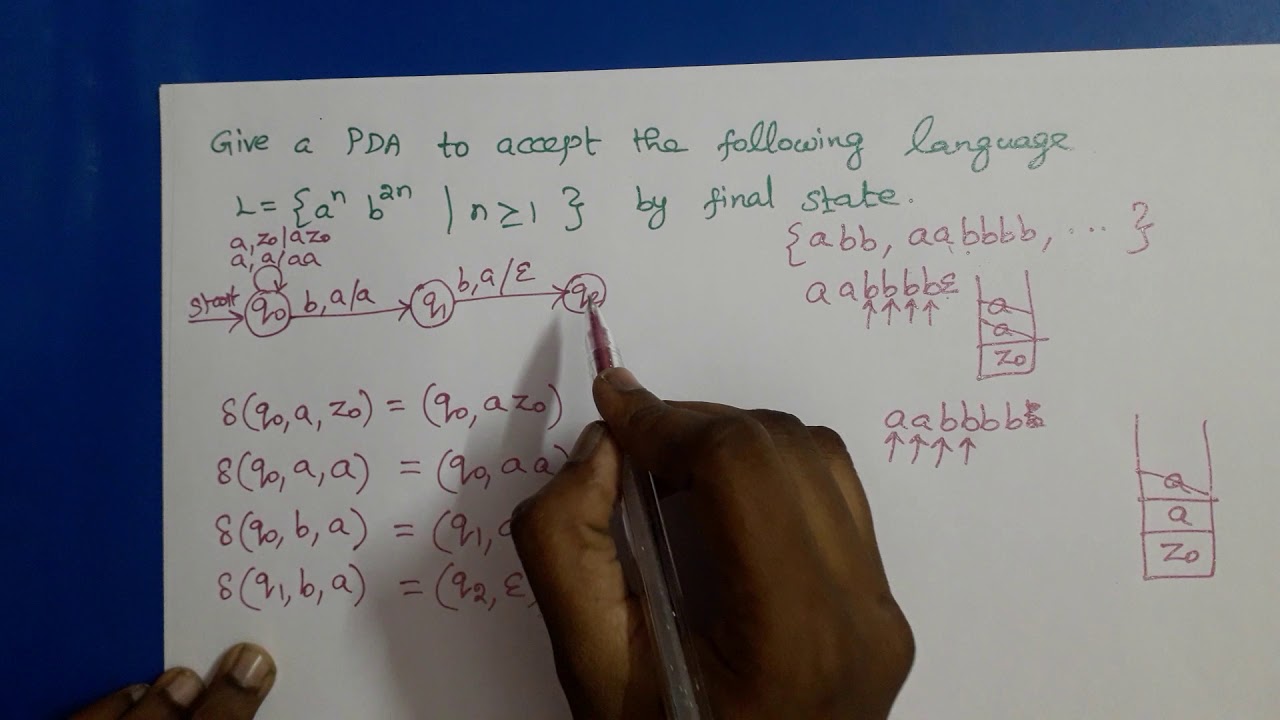 Give a PDA to accept the following language
L = {aⁿ b²ⁿ | n ≥ 1 } by final state.
{abb, aabbbb, ... }
a, z₀/az₀
a, a/aa
start q₀ b, a/a q₁ b, a/ε
a a b b b b ε
↑ ↑ ↑ ↑
a
a
z₀
δ(q₀, a, z₀) = (q₀, a z₀)
δ(q₀, a, a) = (q₀, aa)
δ(q₀, b, a) = (q₁,
δ(q₁, b, a) = (q₂, ε
a a b b b b
↑ ↑ ↑ ↑
a
a
z₀